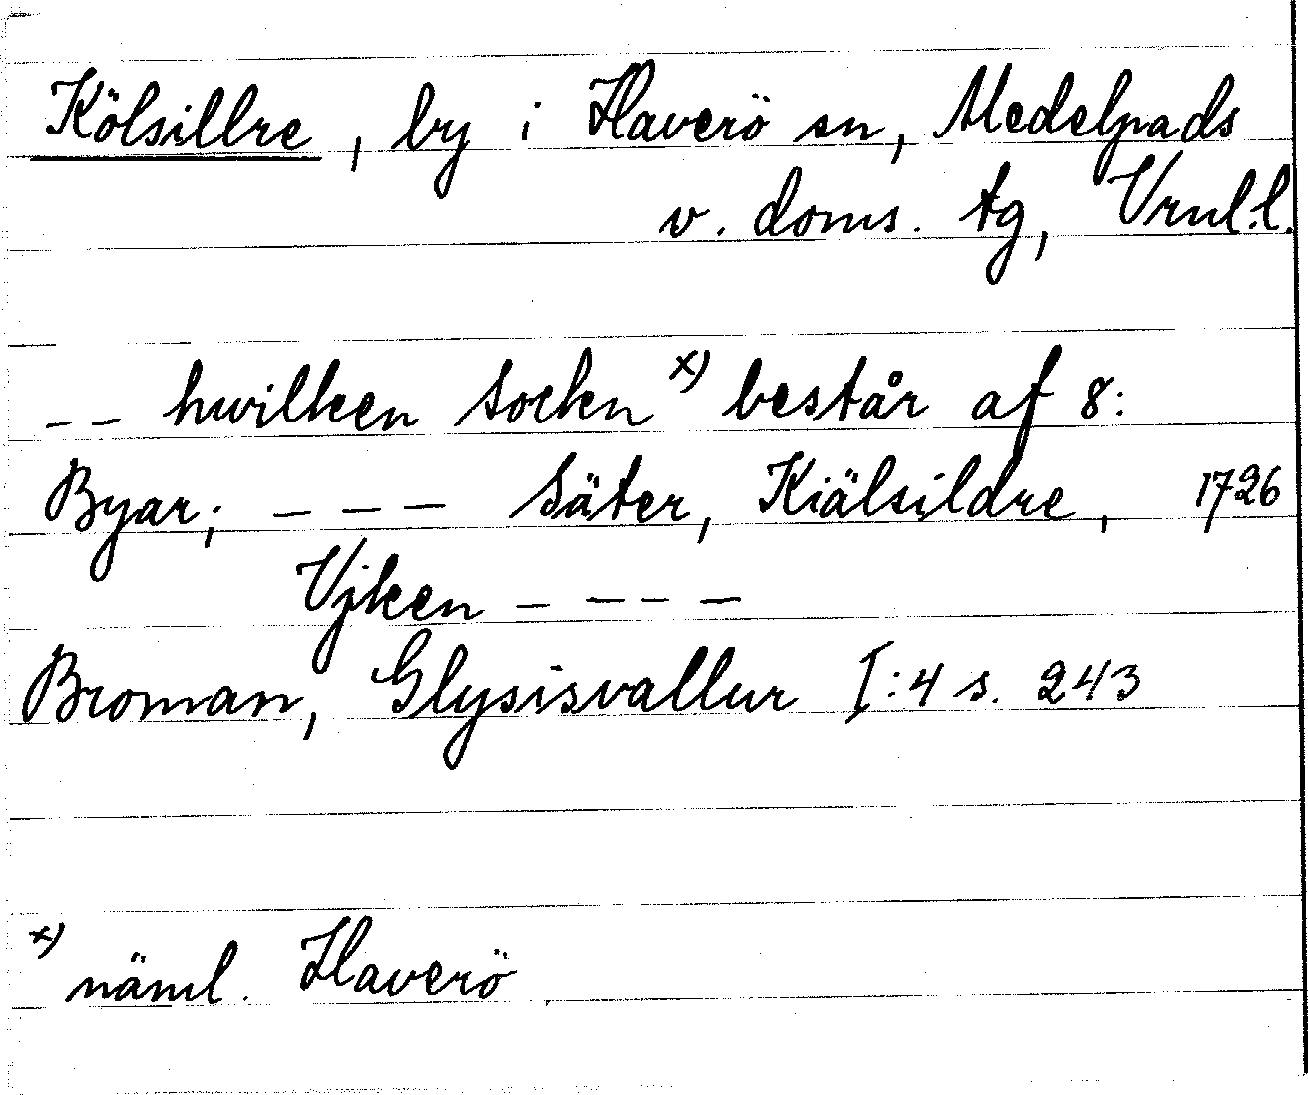 Kölsillre, by i Haverö sn, Medelpads
v. doms. tg, Vrnl.l.
-- hwilken Socken x) består af 8:
Byar; --- Säter, Kiälsildre, 1726
Vjken ----
Broman, Glysisvallur I:4 s. 243
x) näml. Haverö